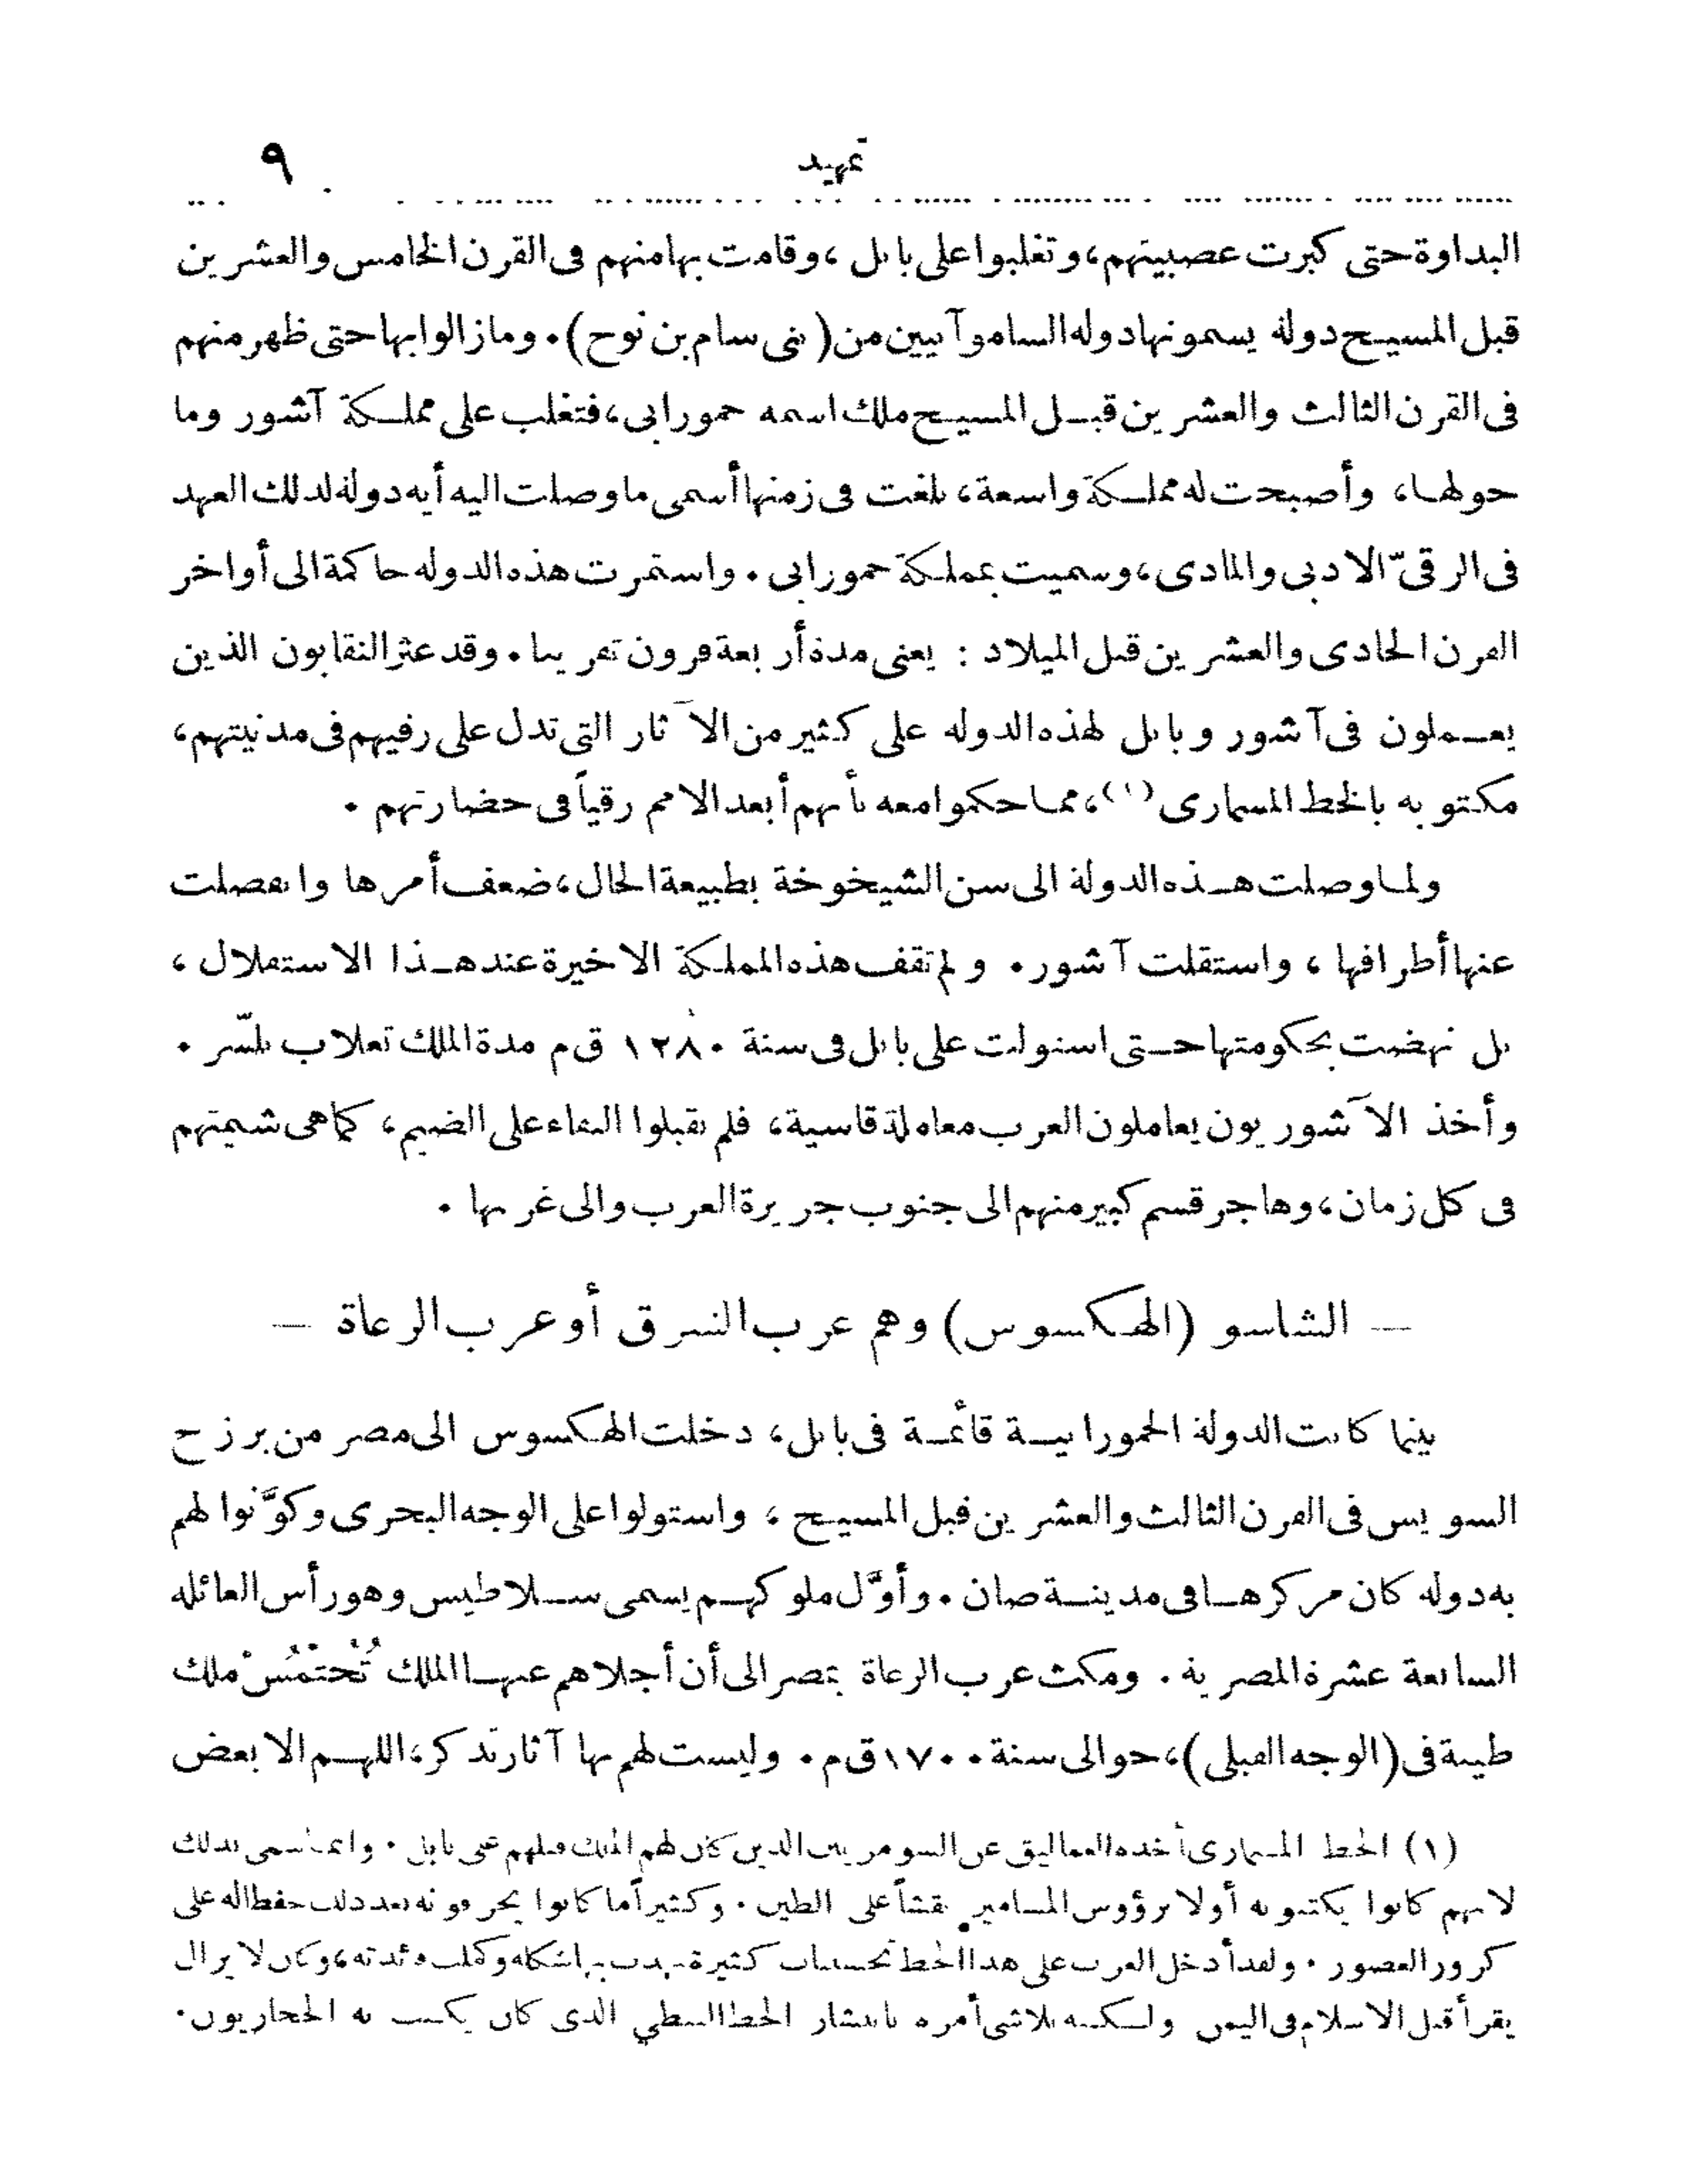 تمهيد ٩
البداوة حتى كبرت عصبيتهم، وتغلبوا على بابل، وقامت بها منهم فى القرن الخامس والعشرين
قبل المسيح دولة يسمونها دولة الساموآبيين من (بنى سام بن نوح). ومازالوا بها حتى ظهر منهم
فى القرن الثالث والعشرين قبل المسيح ملك اسمه حمورابى، فتغلب على مملكة آشور وما
حولها، وأصبحت له مملكة واسعة، بلغت فى زمنها أسمى ما وصلت اليه أية دولة لذلك العهد
فى الرقىّ الادبى والمادى، وسميت بمملكة حمورابى. واستمرت هذه الدولة حاكمة الى أواخر
القرن الحادى والعشرين قبل الميلاد : يعنى مدة أربعة قرون تقريبا. وقد عثر النقابون الذين
يعملون فى آشور وبابل لهذه الدولة على كثير من الآثار التى تدل على رقيهم فى مدنيتهم،
مكتوبة بالخط المسمارى (١)، مما حكموا معه بأنهم أبعد الامم رقياً فى حضارتهم.
ولما وصلت هذه الدولة الى سن الشيخوخة بطبيعة الحال، ضعف أمرها وانفصلت
عنها أطرافها، واستقلت آشور. ولم تقف هذه المملكة الاخيرة عند هذا الاستقلال،
بل نهضت بحكومتها حتى استولت على بابل فى سنة ١٢٨٠ ق م مدة الملك تغلاب بلسّر.
وأخذ الآشوريون يعاملون العرب معاملة قاسية، فلم يقبلوا البقاء على الضيم، كما هى شيمتهم
فى كل زمان، وهاجر قسم كبير منهم الى جنوب جزيرة العرب والى غربها.
— الشاسو (الهكسوس) وهم عرب الشرق أو عرب الرعاة —
بينما كانت الدولة الحمورابية قائمة فى بابل، دخلت الهكسوس الى مصر من برزخ
السويس فى القرن الثالث والعشرين قبل المسيح، واستولوا على الوجه البحرى وكوَّنوا لهم
به دولة كان مركزها فى مدينة صان. وأوَّل ملوكهم يسمى سلاطيس وهو رأس العائلة
السابعة عشرة المصرية. ومكث عرب الرعاة بمصر الى أن أجلاهم عنها الملك تُحتمُسْ ملك
طيبة فى (الوجه القبلى)، حوالى سنة ١٧٠٠ ق م. وليست لهم بها آثار تذكر، اللهم الا بعض
(١) الخط المسمارى أخذه العماليق عن السومريين الذين كان لهم الملك قبلهم على بابل. وانما سمى بذلك
لانهم كانوا يكتبونه أولا برؤوس المسامير نقشاً على الطين. وكثيراً ما كانوا يحرقونه بعد ذلك حفظا له على
كرور العصور. ولقد أدخل العرب على هذا الخط تحسينات كثيرة وكملت فائدته، وكان لا يزال
يقرأ قبل الاسلام فى اليمن ولكنه تلاشى أمره بانتشار الخط النبطي الذى كان يكتب به الحجازيون.